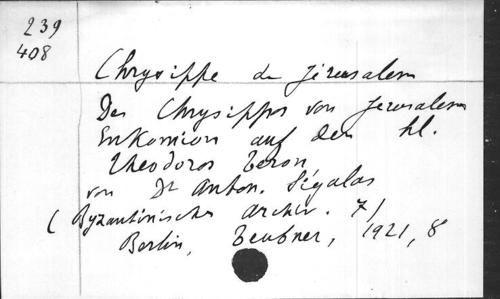 239
408
Chrysippe de Jérusalem
Des Chrysippos von Jerusalem
Enkomion auf den hl.
Theodoros Teron
von Dr Anton. Sigalas
(Byzantinisches Archiv. 7)
Berlin, Teubner, 1921, 8